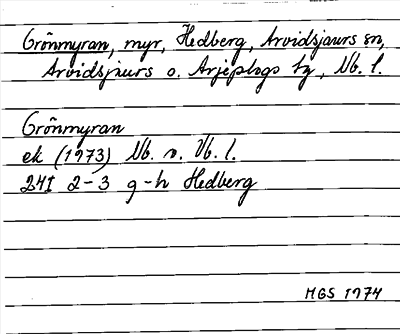 Grönmyran, myr, Hedberg, Arvidsjaurs sn,
Arvidsjaurs o. Arjeplogs tg, Nb. l.
Grönmyran
ek (1973) Nb. o. Vb. l.
24I 2-3 g-h Hedberg
MGS 1974